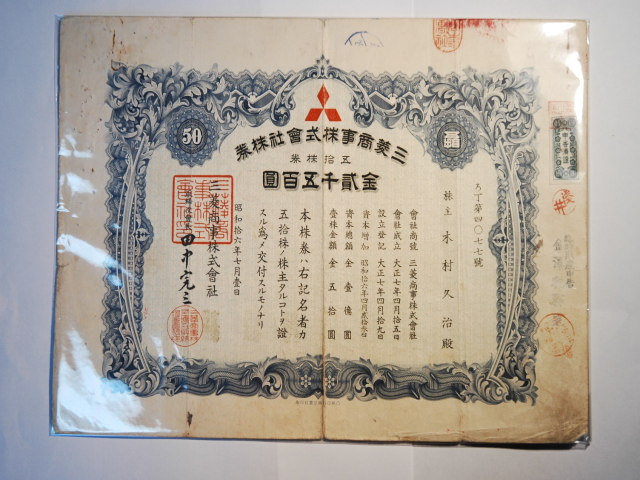 三菱商事株式會社株券
五拾株券
金貳千五百圓
50
ろ丁第四〇七七號
株主 木村久治殿
會社商號 三菱商事株式會社
會社成立 大正七年四月拾五日
設立登記 大正七年四月拾九日
資本增加 昭和拾六年四月貳拾參日
資本總額 金壹億圓
壹株金額 金五拾圓
本株券ハ右記名者カ
五拾株ノ株主タルコトヲ證
スル爲メ交付スルモノナリ
昭和拾六年七月壹日
三菱商事株式會社
田中完三